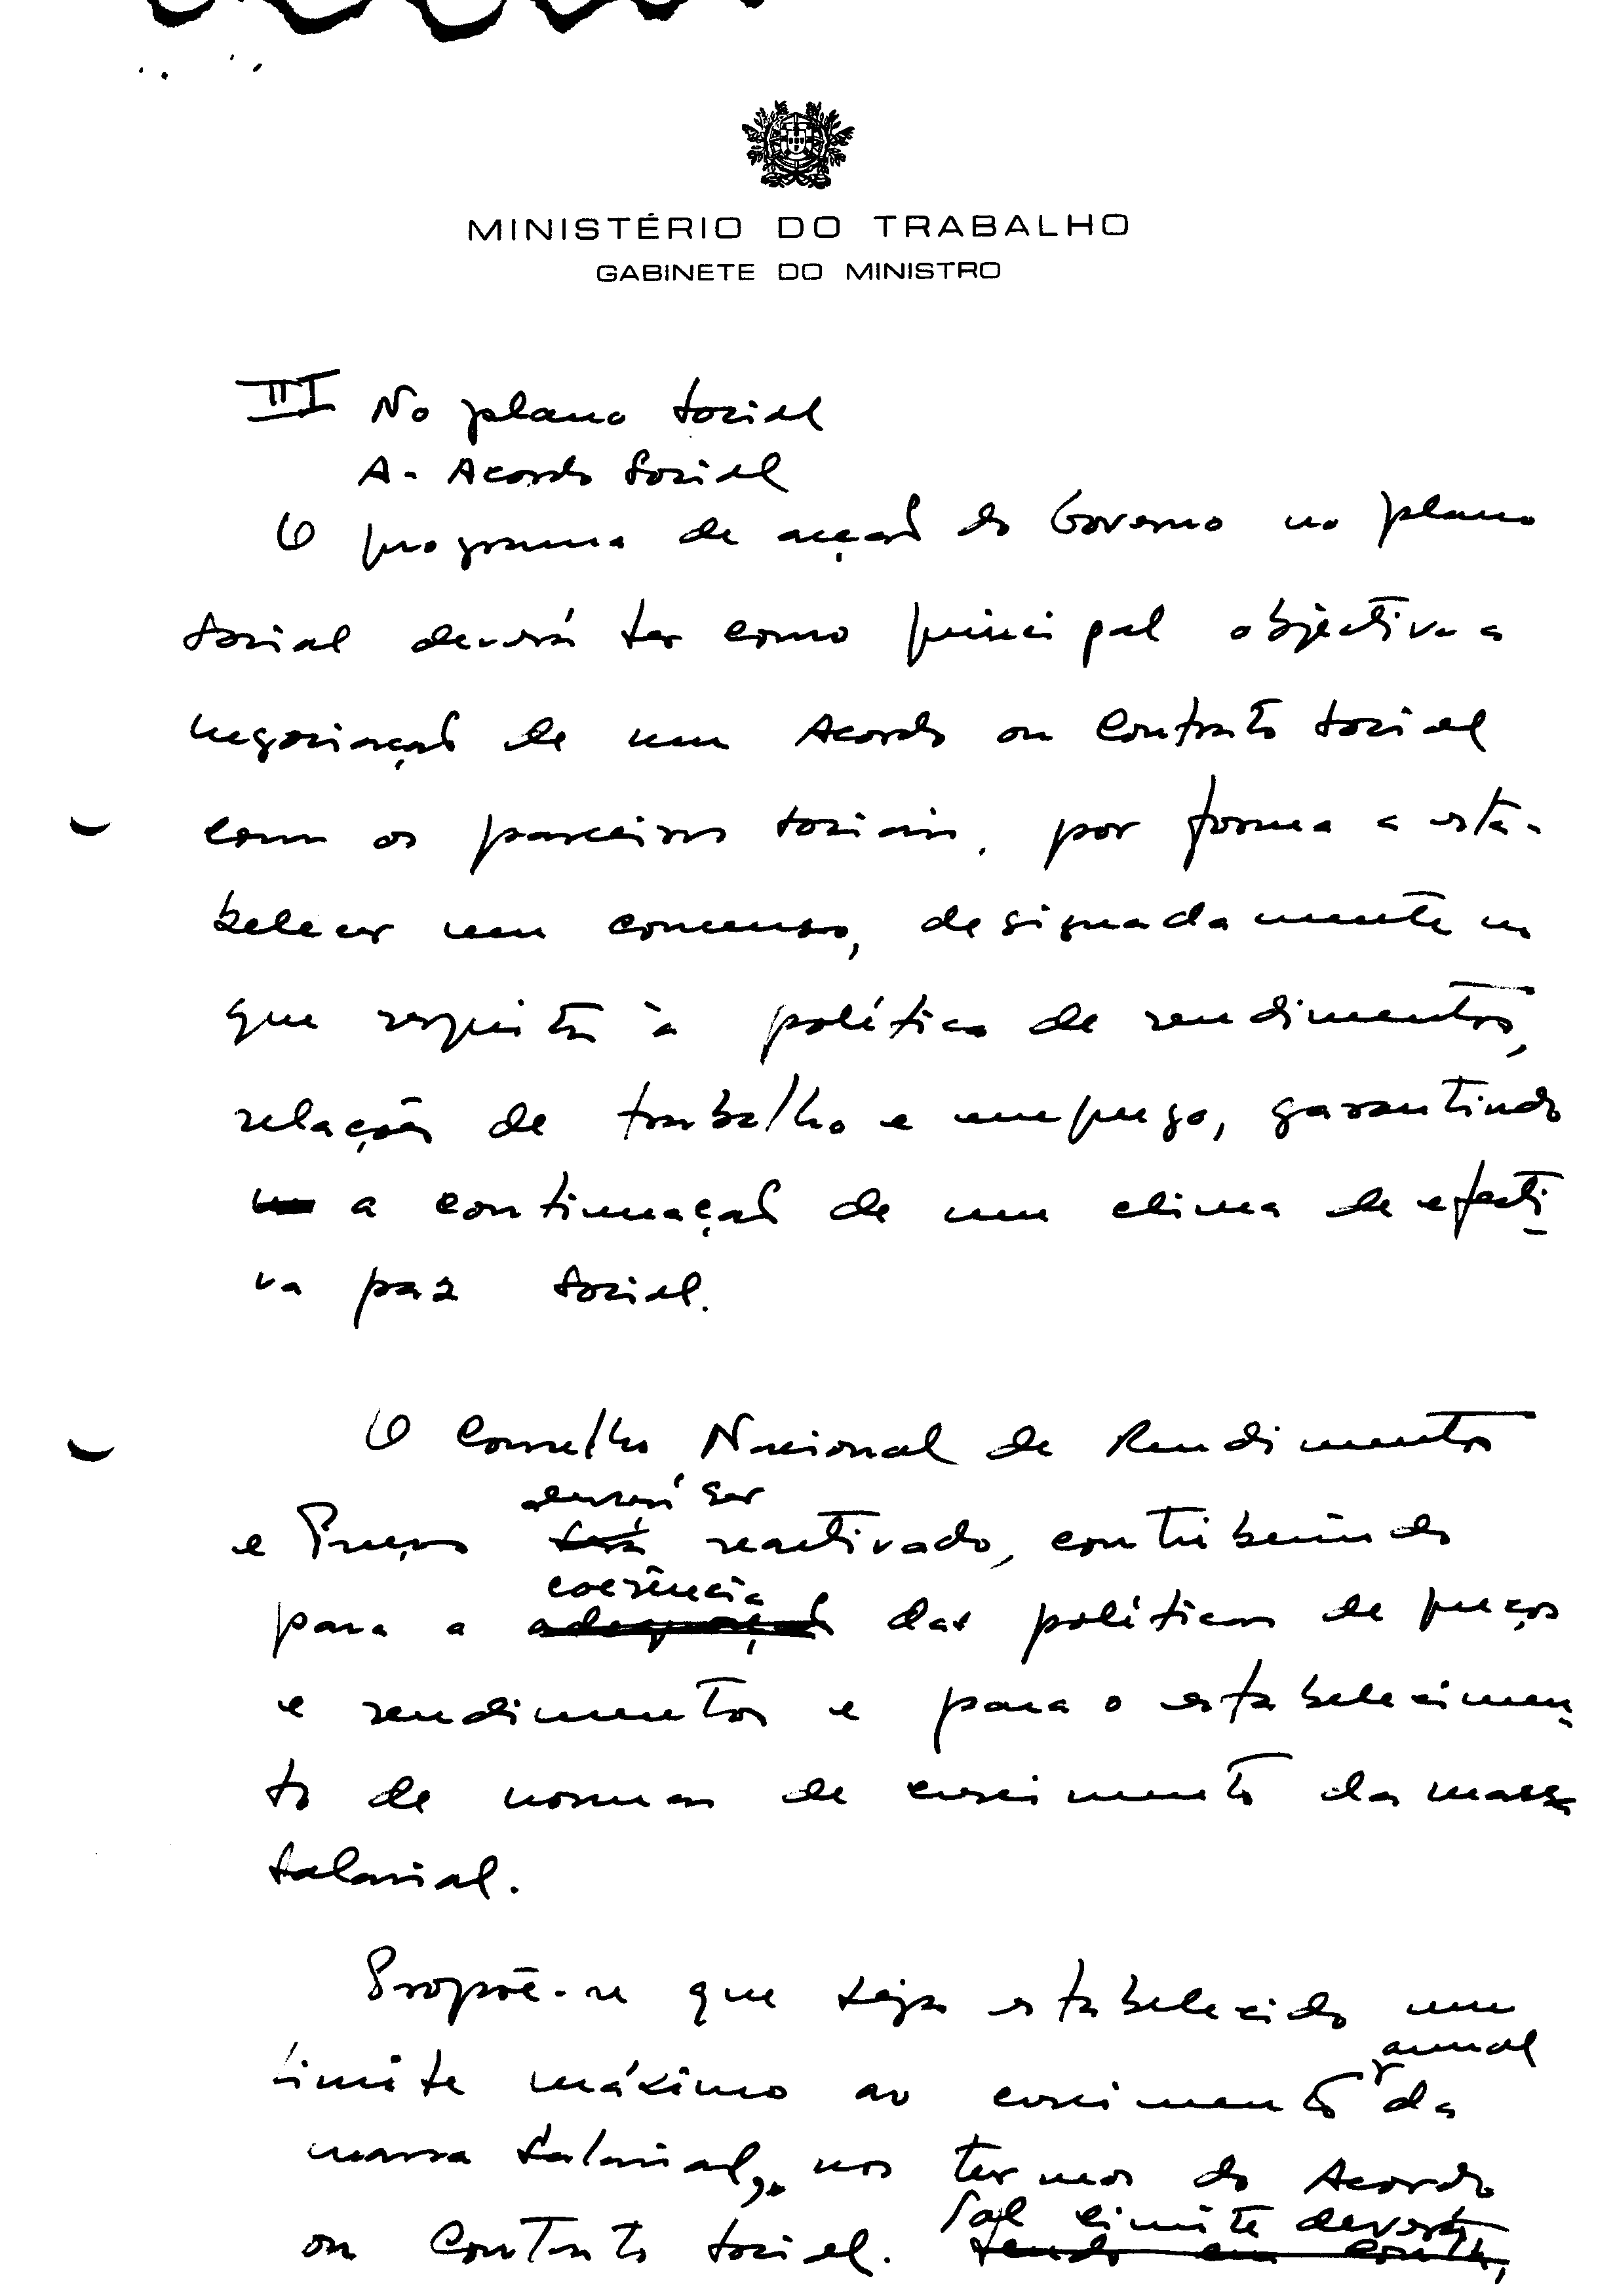 MINISTÉRIO DO TRABALHO
GABINETE DO MINISTRO
III No plano social
A- Acordo Social
O programa de acção do Governo no plano
social deverá ter como principal objectivo a
negociação de um Acordo ou Contrato Social
com os parceiros sociais, por forma a esta-
belecer um consenso, designadamente no
que respeita à política de rendimentos,
relações de trabalho e emprego, garantindo
a continuação de um clima de efecti-
va paz social.
O Conselho Nacional de Rendimentos
deverá ser
e Preços será reactivado, contribuindo
coerência
para a adequação das políticas de preços
e rendimentos e para o estabelecimen-
to de normas de crescimento da massa
salarial.
Propõe-se que seja estabelecido um
anual
limite máximo ao crescimento da
massa salarial, nos termos do Acordo
Tal limite deverá,
ou Contrato Social. tendo em conta,